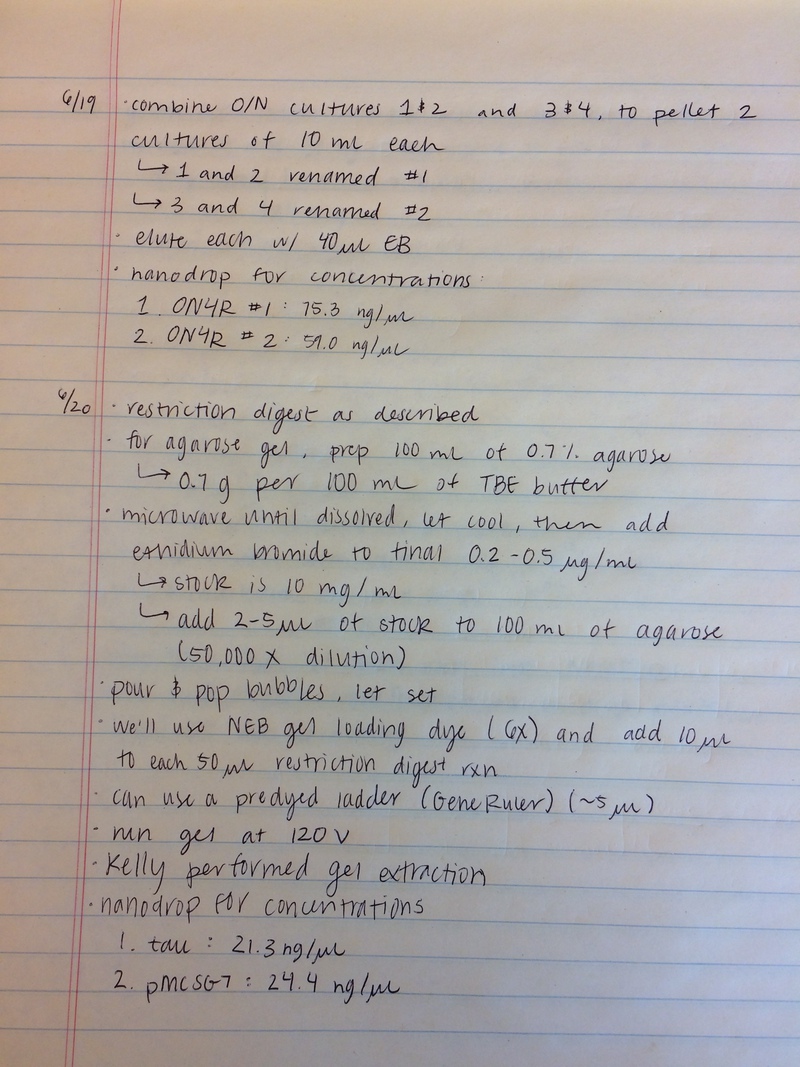 6/19 · combine O/N cultures 1&2 and 3&4, to pellet 2
cultures of 10 ml each
↳ 1 and 2 renamed #1
↳ 3 and 4 renamed #2
· elute each w/ 40 μl EB
· nanodrop for concentrations:
1. ON4R #1 : 75.3 ng/μl
2. ON4R # 2 : 59.0 ng/μl
6/20 · restriction digest as described
· for agarose gel, prep 100 ml of 0.7% agarose
↳ 0.7 g per 100 ml of TBE buffer
· microwave until dissolved, let cool, then add
ethidium bromide to final 0.2 - 0.5 μg/ml
↳ stock is 10 mg/ml
↳ add 2-5 μl of stock to 100 ml of agarose
(50,000 X dilution)
· pour & pop bubbles, let set
· we'll use NEB gel loading dye (6X) and add 10 μl
to each 50 μl restriction digest rxn
· can use a predyed ladder (GeneRuler) (~5 μl)
· run gel at 120 V
· Kelly performed gel extraction
· nanodrop for concentrations
1. tau : 21.3 ng/μl
2. pMCSG7 : 24.4 ng/μl